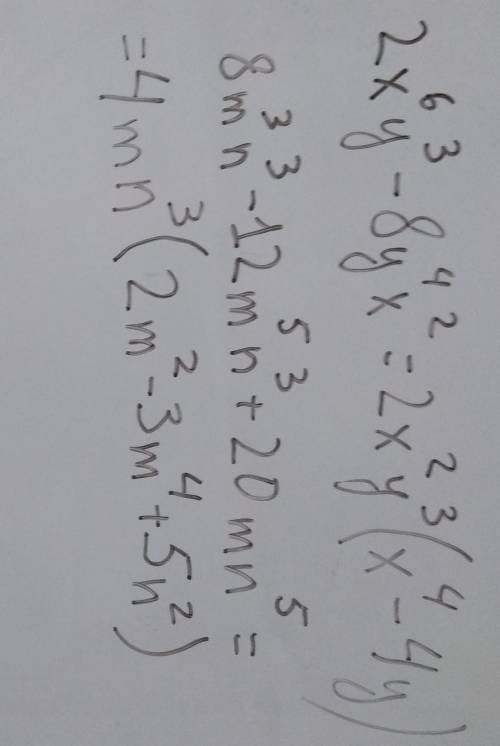 2x⁶y³ - 8y⁴x² = 2x²y³(x⁴ - 4y)
8m³n³ - 12m⁵n³ + 20mn⁵ =
= 4mn³(2m² - 3m⁴ + 5n²)